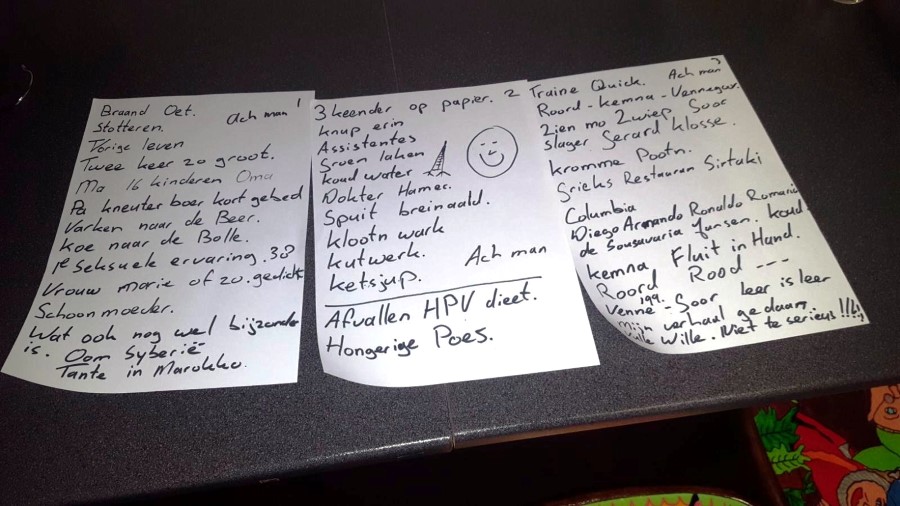 Braand Oet. 1
Stotteren. Ach man
Vorige leven
Twee keer zo groot.
Ma 16 kinderen Oma
Pa kneuter boer kort gebed
Varken naar de Beer.
Koe naar de Bolle.
1e Seksuele ervaring. 3D
Vrouw Marie of zo. gedicht
Schoonmoeder.
Wat ook nog wel bijzonder
is. Oom Syberië
Tante in Marokko.
3 keender op papier. 2
knup erin
Assistentes
Groen laken
koud water
Dokter Hamer.
Spuit breinaald.
klootn wark
kutwerk. Ach man
ketsjup.
Afvallen HPV dieet.
Hongerige Poes.
3
Traine Quick. Ach man
Roord - kemna - Vennegoor.
Zien mo Zwiep Soor
slager Gerard Klosse.
kromme Pootn.
Grieks Restauran Sirtaki
Columbia
Diego Armando Ronaldo Romario
de Sousavaria Jansen. koud
kemna Fluit in Hand.
Roord Rood ---
Venne - Goor leer is leer
199.
Mijn verhaal gedaan
Wille. Niet te serieus !!!